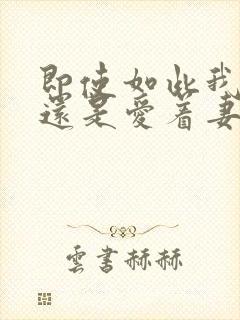 即使如此我
還是愛着妻
雲書赫赫